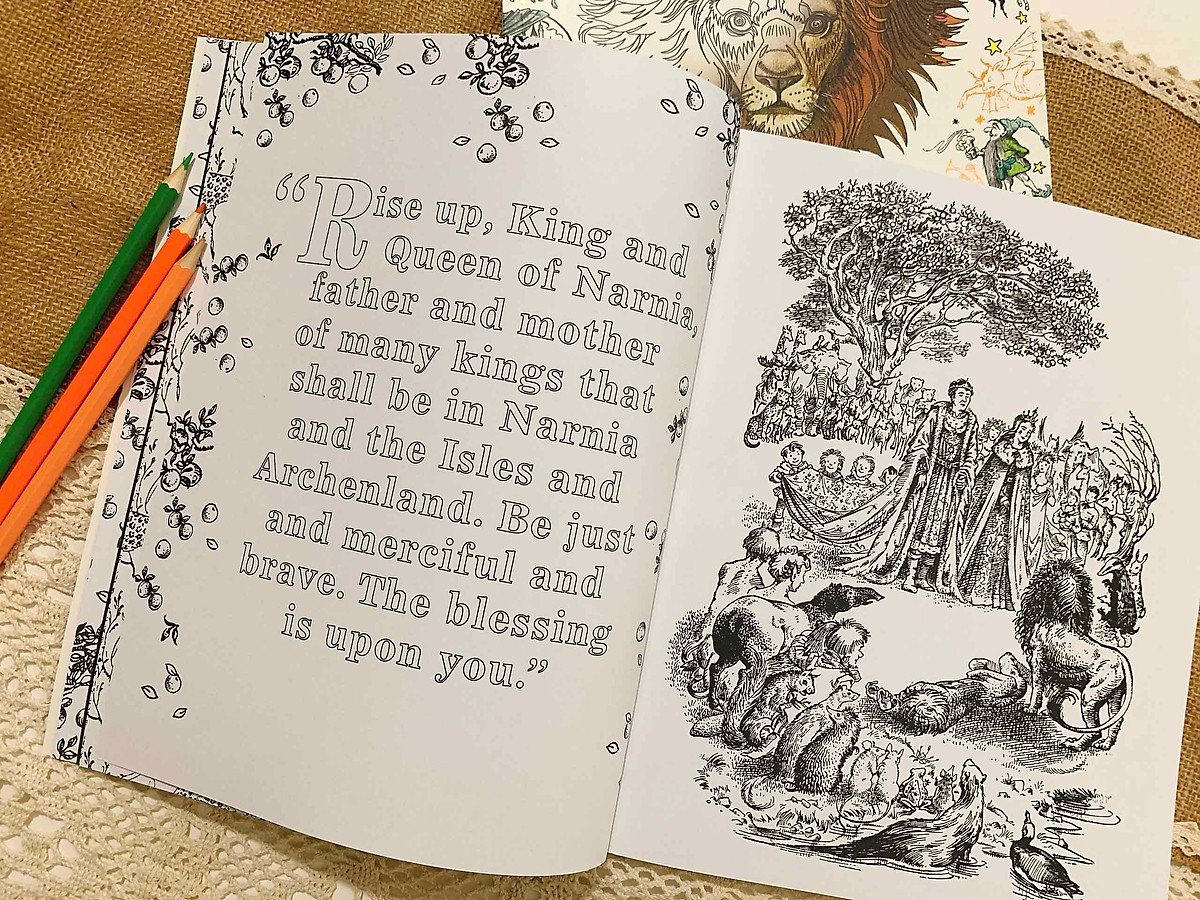 “Rise up, King and
Queen of Narnia,
father and mother
of many kings that
shall be in Narnia
and the Isles and
Archenland. Be just
and merciful and
brave. The blessing
is upon you.”